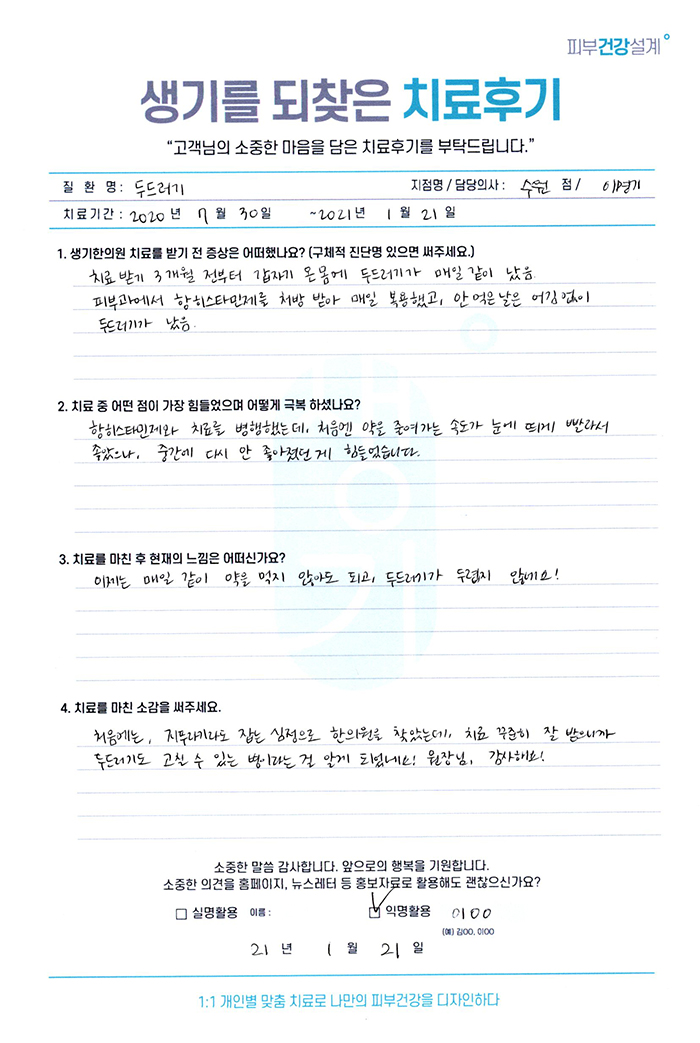 피부건강설계
생기를 되찾은 치료후기
“고객님의 소중한 마음을 담은 치료후기를 부탁드립니다.”
질 환 명 : 두드러기 지점명 / 담당의사 : 수원 점 /
치료기간 : 2020 년 7 월 30 일 ~2021 년 1 월 21 일
1. 생기한의원 치료를 받기 전 증상은 어떠했나요? (구체적 진단명 있으면 써주세요.)
치료 받기 3개월 전부터 갑자기 온몸에 두드러기가 매일 같이 났음.
피부과에서 항히스타민제를 처방 받아 매일 복용했고, 안 먹은 날은 어김없이
두드러기가 났음.
2. 치료 중 어떤 점이 가장 힘들었으며 어떻게 극복 하셨나요?
항히스타민제와 치료를 병행했는데, 처음엔 약을 줄여가는 속도가 눈에 띄게 빨라서
좋았으나, 중간에 다시 안 좋아졌던 게 힘들었습니다.
3. 치료를 마친 후 현재의 느낌은 어떠신가요?
이제는 매일 같이 약을 먹지 않아도 되고, 두드러기가 두렵지 않네요!
4. 치료를 마친 소감을 써주세요.
처음에는, 지푸라기라도 잡는 심정으로 한의원을 찾았는데, 치료 꾸준히 잘 받으니까
두드러기도 고칠 수 있는 병이라는 걸 알게 되었네요! 원장님, 감사해요!
소중한 말씀 감사합니다. 앞으로의 행복을 기원합니다.
소중한 의견을 홈페이지, 뉴스레터 등 홍보자료로 활용해도 괜찮으신가요?
□ 실명활용 이름 : ☑ 익명활용 이00
(예) 김OO, 이OO
21 년 1 월 21 일
1:1 개인별 맞춤 치료로 나만의 피부건강을 디자인하다